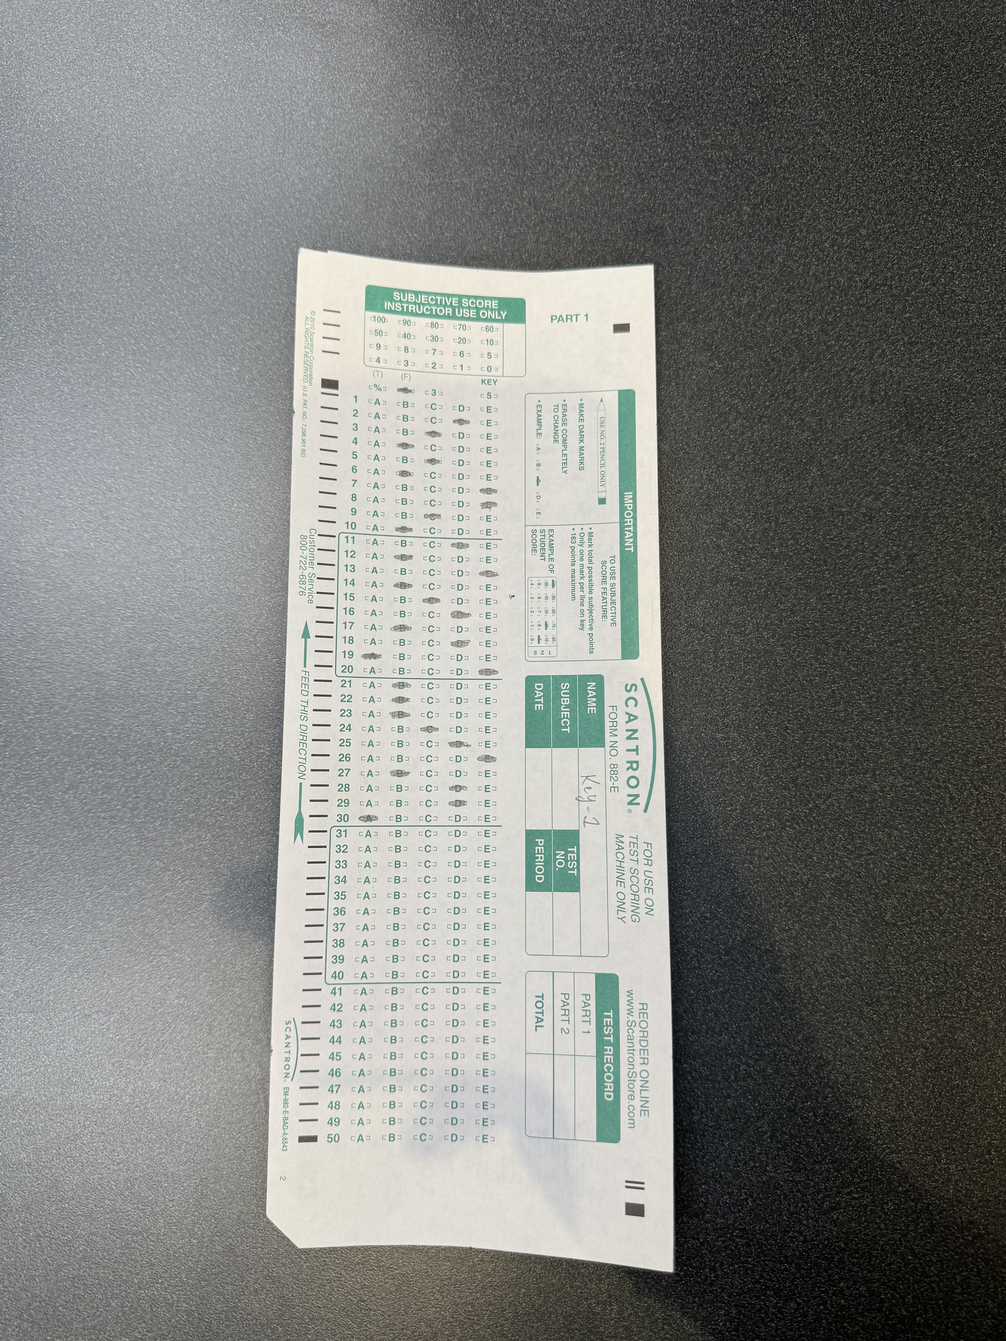 PART 1
SUBJECTIVE SCORE
INSTRUCTOR USE ONLY
100 90 80 70 60
50 40 30 20 10
9 8 7 6 5
4 3 2 1 0
(T) (F) KEY
% 3 5
1 A B C D E
2 A B C E
3 A B D E
4 A C D E
5 A B D E
6 A C D E
7 A B C D
8 A B C D
9 A B D E
10 A C D E
11 A B C E
12 A C D E
13 A B C D
14 A C D E
15 A B D E
16 A B C E
17 A C D E
18 A B C E
19 B C D E
20 A B C D
21 A C D E
22 A C D E
23 A C D E
24 A B D E
25 A B C E
26 A B C D
27 A C D E
28 A B C E
29 A B C E
30 B C D E
31 A B C D E
32 A B C D E
33 A B C D E
34 A B C D E
35 A B C D E
36 A B C D E
37 A B C D E
38 A B C D E
39 A B C D E
40 A B C D E
41 A B C D E
42 A B C D E
43 A B C D E
44 A B C D E
45 A B C D E
46 A B C D E
47 A B C D E
48 A B C D E
49 A B C D E
50 A B C D E
IMPORTANT
USE NO. 2 PENCIL ONLY
• MAKE DARK MARKS
• ERASE COMPLETELY
TO CHANGE
• EXAMPLE: A B D E
TO USE SUBJECTIVE
SCORE FEATURE:
• Mark total possible subjective points
• Only one mark per line on key
• 163 points maximum
EXAMPLE OF
STUDENT
SCORE:
SCANTRON®
FORM NO. 882-E
NAME Key-1
SUBJECT
TEST
NO.
DATE
PERIOD
FOR USE ON
TEST SCORING
MACHINE ONLY
REORDER ONLINE
www.ScantronStore.com
TEST RECORD
PART 1
PART 2
TOTAL
© 2010 Scantron Corporation
ALL RIGHTS RESERVED.
Customer Service
800-722-6876
FEED THIS DIRECTION
SCANTRON.
2